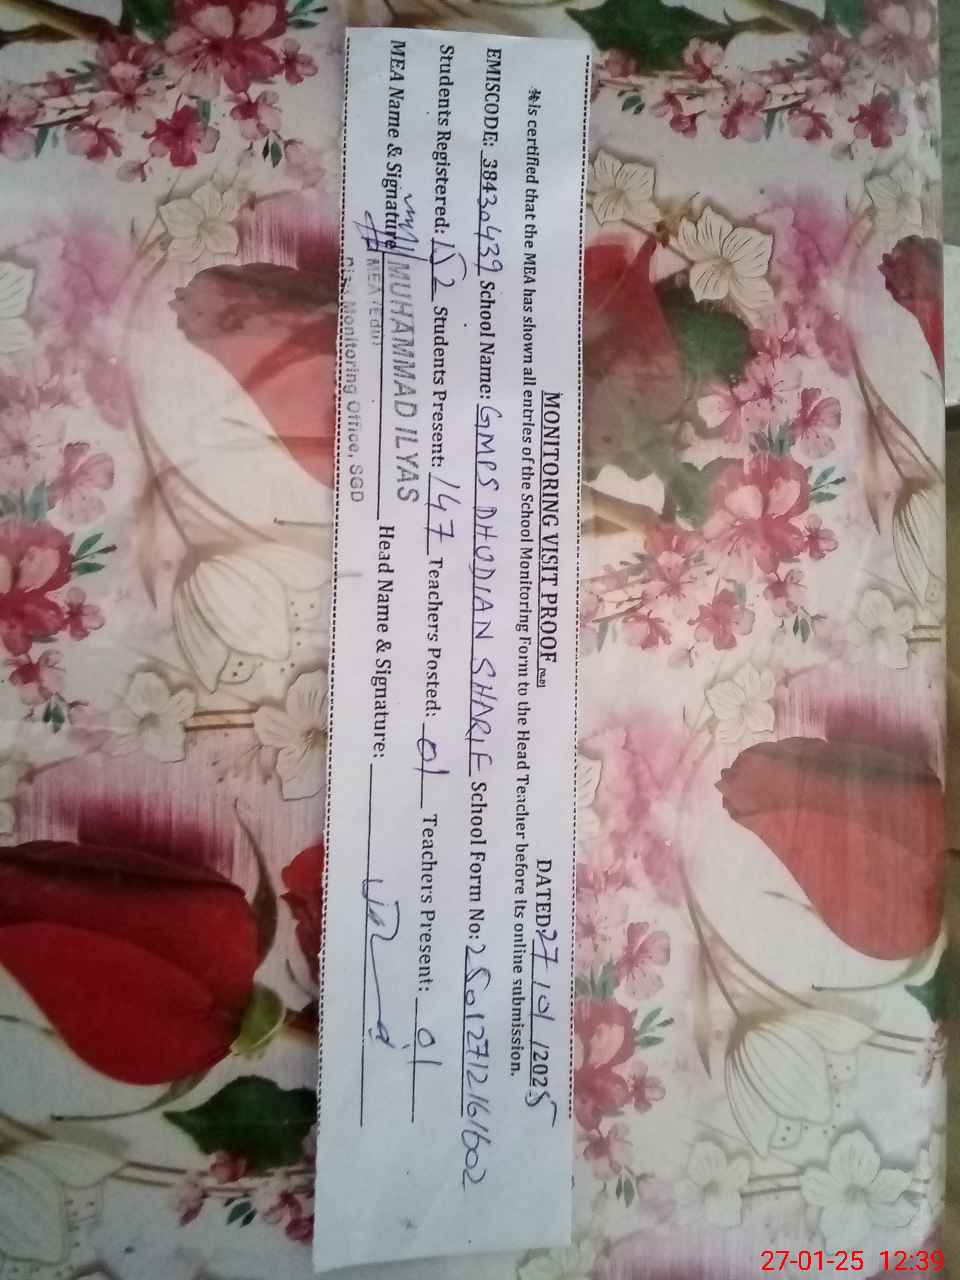 MONITORING VISIT PROOF DATED 27/01/2025
is certified that the MEA has shown all entries of the School Monitoring Form to the Head Teacher before its online submission.
EMISCODE: 38430439 School Name: GMPS DHUDIAN SHARIF School Form No: 25012712161602
Students Registered: 152 Students Present: 147 Teachers Posted: 01 Teachers Present: 01
MEA Name & Signature Head Name & Signature:
MUHAMMAD ILYAS
MEA (Edu)
Monitoring Office, SGD
27-01-25 12:39